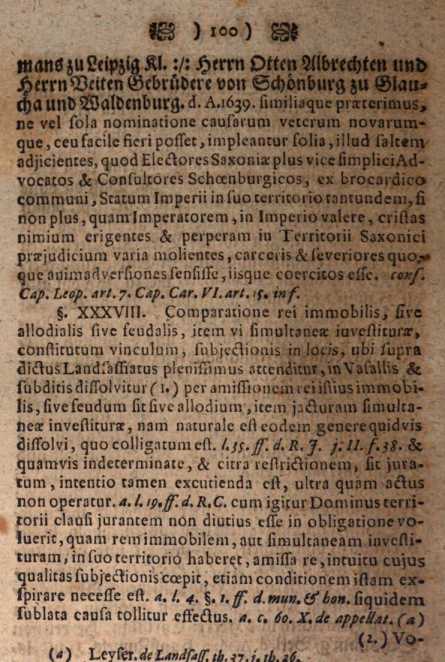 ) 100 (
mans zu Leipzig Kl. :/: Herrn Otten Albrechten und
Herrn Veiten Gebrüdere von Schönburg zu Glau-
cha und Waldenburg. d. A. 1639. similiaque præterimus,
ne vel sola nominatione causarum veterum novarum-
que, ceu facile fieri posset, impleantur folia, illud saltem
adjicientes, quod Electores Saxoniæ plus vice simplici Ad-
vocatos & Consultores Schœnburgicos, ex brocardico
communi, Statum Imperii in suo territorio tantundem, si
non plus, quam Imperatorem, in Imperio valere, cristas
nimium erigentes & perperam in Territorii Saxonici
præjudicium varia molientes, carceris & severiores quo-
que animadversiones sensisse, iisque coercitos esse. conf.
Cap. Leop. art. 7. Cap. Car. VI. art. 15. inf.
§. XXXVIII. Comparatione rei immobilis, sive
allodialis sive feudalis, item vi simultaneæ iuvestituræ,
constitutum vinculum, subjectionis in locis, ubi supra
dictus Landsassiatus plenissimus attenditur, in Vasallis &
subditis dissolvitur (1.) per amissionem rei istius immobi-
lis, sive feudum sit sive allodium, item jacturam simulta-
neæ investituræ, nam naturale est eodem genere quidvis
dissolvi, quo colligatum est. l. 35. ff. d. R. J. j. II. f. 38. &
quamvis indeterminate, & citra restrictionem, sit jura-
tum, intentio tamen excutienda est, ultra quam actus
non operatur. a. l. 19. ff. d. R. C. cum igitur Dominus terri-
torii clausi jurantem non diutius esse in obligatione vo-
luerit, quam rem immobilem, aut simultaneam investi-
turam, in suo territorio haberet, amissa re, intuitu cujus
qualitas subjectionis cœpit, etiam conditionem istam ex-
spirare necesse est. a. l. 4. §. 1. ff. d. mun. & hon. siquidem
sublata causa tollitur effectus. a. c. 60. X. de appellat. (a)
(2.) Vo-
(a) Leyser. de Landsass. th. 37. j. th. 26.